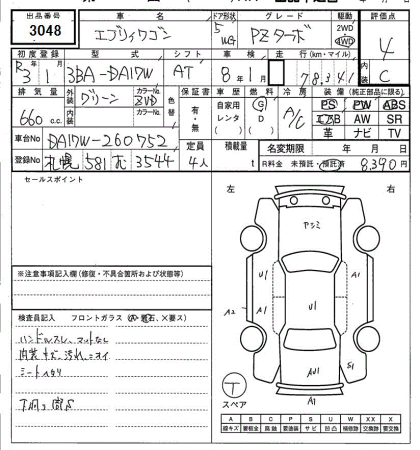 出品番号 車名 ドア形状 グレード 駆動 評価点
3048 エブリイワゴン 5 WG PZターボ 2WD 4WD 4
初度登録 型式 シフト 車検 走行(km・マイル) 内装
R3年1月 3BA-DA17W AT 8年1月 78,341 C
排気量 外装 カラーNo. 色替 保証書 車歴 燃料 冷房 装備(純正部品に限る)
660 c.c. グリーン ZVD 有・無 自家用 レンタ G D A/C PS PW ABS
内装 カラーNo. エアB AW SR
革 ナビ TV
車台No DA17W-260752 定員 積載量 名変期限 年 月 日
登録No 札幌 581 3544 4人 t R料金 未預託・預託済 8,390円
セールスポイント
左 右
ヤシミ
U1 A1
A2 A1 U1
S1
AU1
A1
※注意事項記入欄(修復・不具合箇所および状態等)
検査員記入 フロントガラス
ハンドルスレ、マットなし
内装キズ、汚れ、ニオイ
シートヘタリ
下廻り腐S
T
スペア
A B C P S U W X XX
線キズ 要板金 腐蝕 要塗装 サビ 凹凸 補修跡 交換跡 要交換